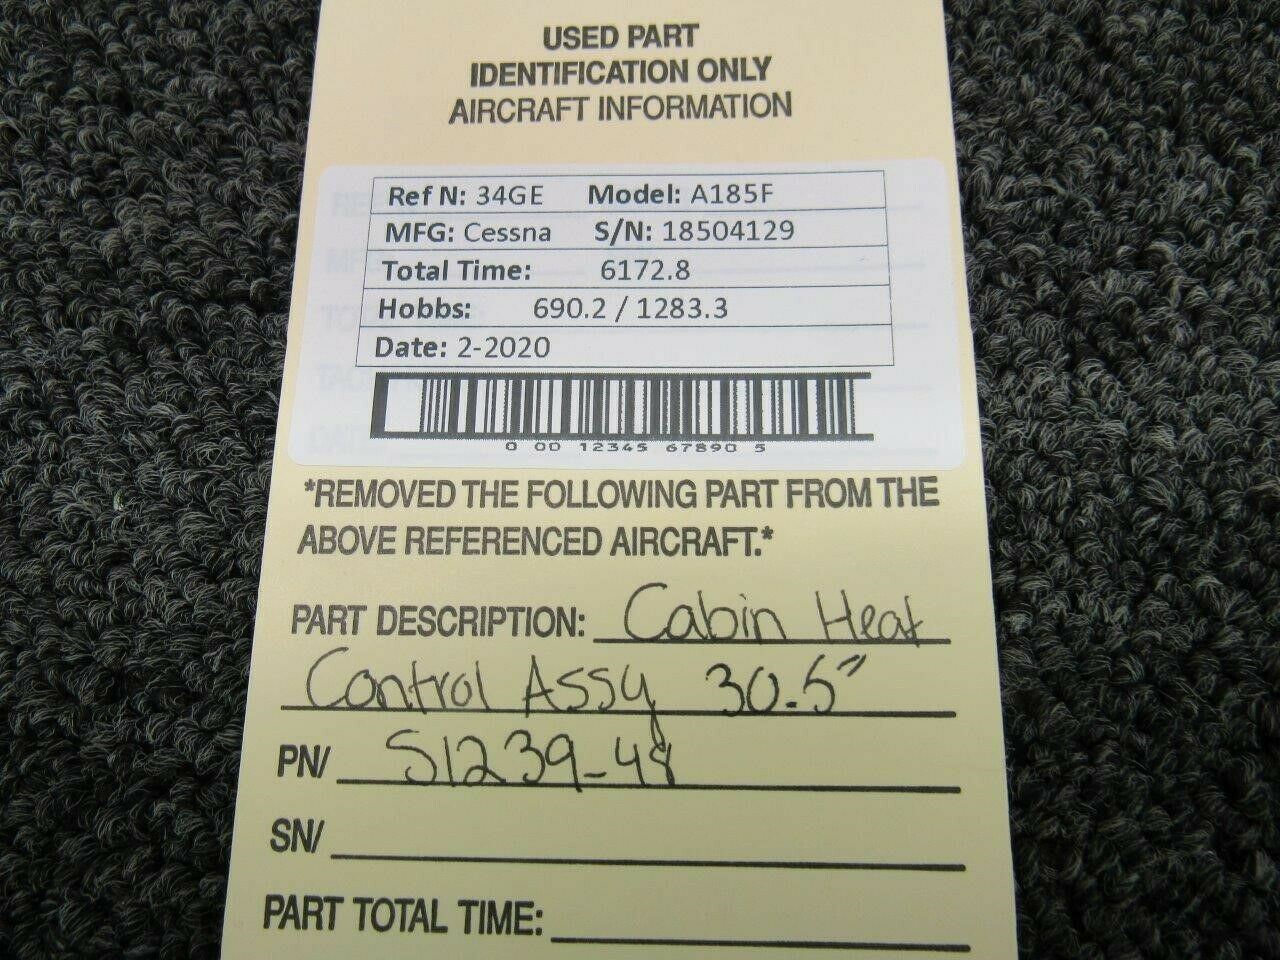 USED PART
IDENTIFICATION ONLY
AIRCRAFT INFORMATION
Ref N: 34GE Model: A185F
MFG: Cessna S/N: 18504129
Total Time: 6172.8
Hobbs: 690.2 / 1283.3
Date: 2-2020
0 00 12345 67890 5
*REMOVED THE FOLLOWING PART FROM THE
ABOVE REFERENCED AIRCRAFT.*
PART DESCRIPTION: Cabin Heat
Control Assy 30.5"
PN/ S1239-48
SN/
PART TOTAL TIME: